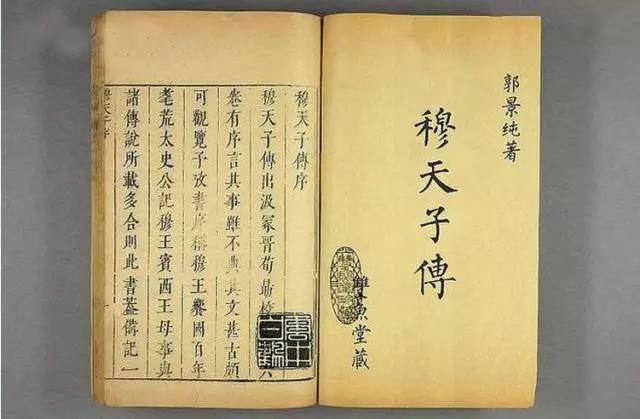 郭景純著
穆天子傳
雙魚堂藏
穆天子傳序
穆天子傳出汲冢晉荀勗校六
卷有序言其事雖不典其文甚古頗
可觀覽予攷書序稱穆王饗國百年
耄荒太史公記穆王賓西王母事與
諸傳說所載多合則此書蓋備記一
穆天子序